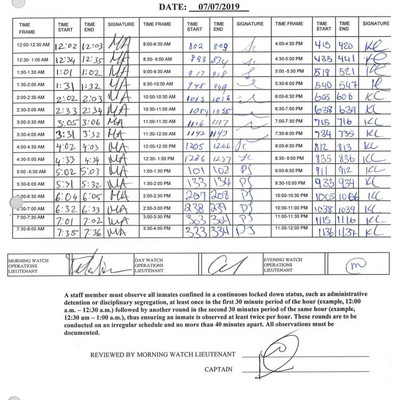 DATE: 07/07/2019
TIME FRAME TIME START TIME END SIGNATURE TIME FRAME TIME START TIME END SIGNATURE TIME FRAME TIME START TIME END SIGNATURE
12:00-12:30 AM 12:02 12:03 MA 8:00-8:30 AM 802 4:00-4:30 PM 415 420 KL
12:30-1:00 AM 12:34 12:35 MA 8:30-9:00 AM 4:30-5:00 PM 435 441 KL
1:00-1:30 AM 1:01 1:02 MA 9:00-9:30 AM 917 918 5:00-5:30 PM 518 521 KL
1:30-2:00 AM 1:31 1:32 MA 9:30-10:00 AM 5:30-6:00 PM 540 547 KL
2:00-2:30 AM 2:02 2:03 MA 10:00-10:30 AM 1013 1016 6:00-6:30 PM 605 606 KL
2:30-3:00 AM 2:33 2:34 MA 10:30-11:00 AM 6:30-7:00 PM 638 KL
3:00-3:30 AM 3:05 3:06 MA 11:00-11:30 AM 1116 1117 7:00-7:30 PM 715 716 KL
3:30-4:00 AM 3:31 3:32 MA 11:30-12:00 PM 1142 1143 7:30-8:00 PM 734 735 KL
4:00-4:30 AM 4:02 4:03 MA 12:00-12:30 PM 1205 1206 8:00-8:30 PM 812 813 KL
4:30-5:00 AM 4:33 4:34 MA 12:30-1:00 PM 1236 1237 8:30-9:00 PM 835 836 KL
5:00-5:30 AM 5:02 5:03 MA 1:00-1:30 PM 101 102 PJ 9:00-9:30 PM 911 912 KL
5:30-6:00 AM 5:31 5:32 MA 1:30-2:00 PM 133 134 PJ 9:30-10:00 PM 933 934 KL
6:00-6:30 AM 6:04 6:05 MA 2:00-2:30 PM 207 208 PJ 10:00-10:30 PM 1005 1006 KL
6:30-7:00 AM 6:32 6:33 MA 2:30-3:00 PM 238 239 PJ 10:30-11:00 PM 1038 1039 KL
7:00-7:30 AM 7:01 7:02 MA 3:00-3:30 PM 303 304 PJ 11:00-11:30 PM 1115 1116 KL
7:30-8:00 AM 7:35 7:36 MA 3:30-4:00 PM 333 334 PJ 11:30-12:00 PM 1136 1137 KL
MORNING WATCH OPERATIONS LIEUTENANT DAY WATCH OPERATIONS LIEUTENANT EVENING WATCH OPERATIONS LIEUTENANT
A staff member must observe all inmates confined in a continuous locked down status, such as administrative
detention or disciplinary segregation, at least once in the first 30 minute period of the hour (example, 12:00
a.m. – 12:30 a.m.) followed by another round in the second 30 minutes period of the same hour (example,
12:30 am – 1:00 a.m.), thus ensuring an inmate is observed at least twice per hour. These rounds are to be
conducted on an irregular schedule and no more than 40 minutes apart. All observations must be
documented.
REVIEWED BY MORNING WATCH LIEUTENANT
CAPTAIN